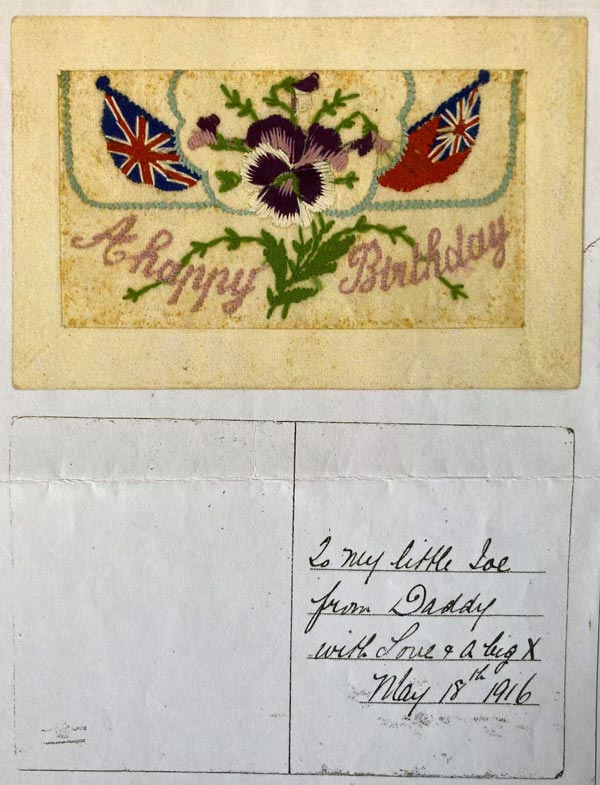 A happy Birthday
To my little Joe
from Daddy
with Love & a big X
May 18th 1916